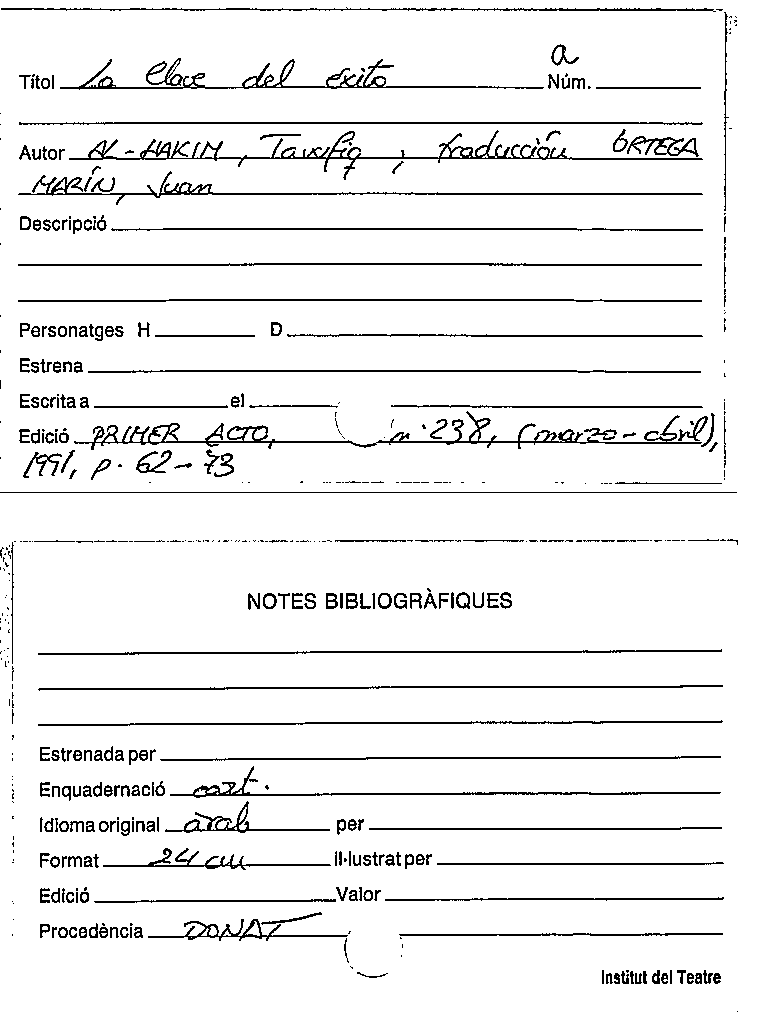 a
Títol La Clave del éxito Núm.
Autor AL-HAKIM, Tawfiq ; traducción ORTEGA
MARÍN, Juan
Descripció
Personatges H D
Estrena
Escrita a el
Edició PRIMER ACTO, nº 238, (marzo-abril),
1991, p. 62-73
NOTES BIBLIOGRÀFIQUES
Estrenada per
Enquadernació cart.
Idioma original àrab per
Format 24 cm Il·lustrat per
Edició Valor
Procedència DONAT
Institut del Teatre